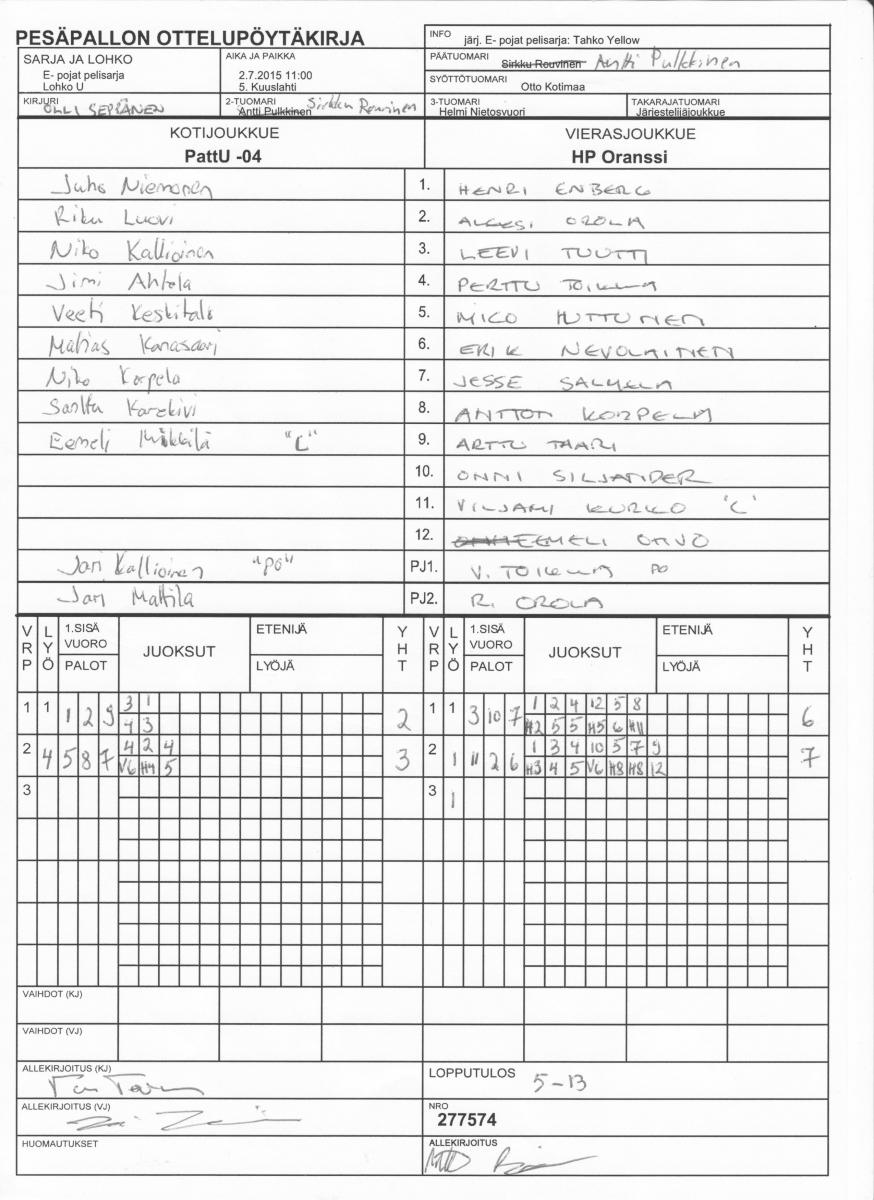 PESÄPALLON OTTELUPÖYTÄKIRJA
INFO järj. E- pojat pelisarja: Tahko Yellow
SARJA JA LOHKO
E- pojat pelisarja
Lohko U
AIKA JA PAIKKA
2.7.2015 11:00
5. Kuuslahti
PÄÄTUOMARI Sirkku Rouvinen Antti Pulkkinen
SYÖTTÖTUOMARI
Otto Kotimaa
KIRJURI
OLLI SEPPÄNEN
2-TUOMARI Sirkku Rouvinen
Antti Pulkkinen
3-TUOMARI
Helmi Nietosvuori
TAKARAJATUOMARI
Järjestelijäjoukkue
KOTIJOUKKUE VIERASJOUKKUE
PattU -04 HP Oranssi
Juho Niemonen 1. HENRI ENBERG
Riku Luovi 2. ALEKSI OROLA
Niko Kallioinen 3. LEEVI TUUTTI
Jimi Ahtola 4. PERTTU TOIKKA
Veeti Keskitalo 5. MICO HUTTUNEN
Matias Kanasaari 6. ERIK NEVOLAINEN
Niko Korpela 7. JESSE SALMELA
Santtu Karekivi 8. ANTTON KORPELA
Eemeli Mikkilä "C" 9. ARTTU TAARI
10. ONNI SILJANDER
11. VILJAMI KURKO "C"
12. EEMELI ORVO
Jari Kallioinen "PO" PJ1. V. TOIKKA PO
Jari Mattila PJ2. R. OROLA
VRP LYÖ 1.SISÄ VUORO PALOT JUOKSUT ETENIJÄ LYÖJÄ YHT VRP LYÖ 1.SISÄ VUORO PALOT JUOKSUT ETENIJÄ LYÖJÄ YHT
3 1 1 2 4 12 5 8
1 1 1 2 9 2 1 1 3 10 7 6
4 3 H2 5 5 H5 6 H11
4 2 4 1 3 4 10 5 7 9
2 4 5 8 7 3 2 1 11 2 6 7
V6 H4 5 H3 4 5 V6 H8 H8 12
3 3 1
VAIHDOT (KJ)
VAIHDOT (VJ)
ALLEKIRJOITUS (KJ)
LOPPUTULOS 5-13
ALLEKIRJOITUS (VJ)
NRO
277574
HUOMAUTUKSET
ALLEKIRJOITUS